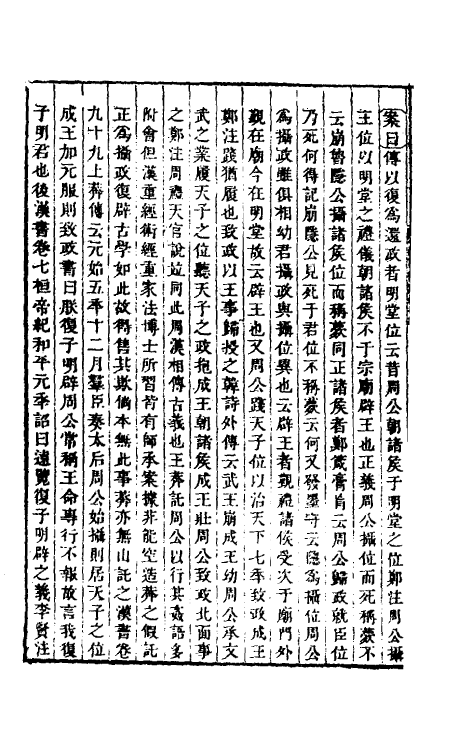 案曰傳以復為還政者明堂位云昔周公朝諸侯于明堂之位鄭注周公攝
王位以明堂之禮儀朝諸侯不于宗廟辟王也正義周公攝位而死稱薨不
云崩魯隱公攝諸侯位而稱薨同正諸侯者鄭箴膏肓云周公歸政就臣位
乃死何得記崩隱公見死于君位不稱薨云何又發墨守云隱為攝位周公
為攝政雖俱相幼君攝政與攝位異也云辟王者覲禮諸侯受次于廟門外
覲在廟今在明堂故云辟王也又周公踐天子位以治天下七年致政成王
鄭注踐猶履也致政以王事歸授之韓詩外傳云武王崩成王幼周公承文
武之業履天子之位聽天子之政抱成王朝諸侯成王壯周公致政北面事
之鄭注周禮天官說竝同此周漢相傳古義也王莽託周公以行其姦語多
附會但漢重經術經重家法博士所習皆有師承案據非能空造莽之假託
正為攝政復辟古學如此故得售其欺倘本無此事莽亦無由託之漢書卷
九十九上莽傳云元始五年十二月羣臣奏太后周公始攝則居天子之位
成王加元服則致政書曰朕復子明辟周公常稱王命專行不報故言我復
子明君也後漢書卷七桓帝紀和平元年詔曰遠覽復子明辟之義李賢注